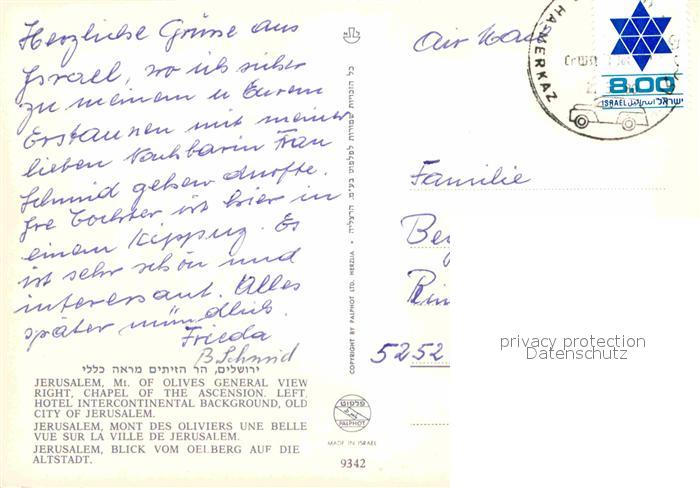 Herzliche Grüsse aus
Israel, wo ich sicher
zu meinem u Eurem
Erstaunen mit meiner
lieben Nachbarin Frau
Schmid gehen durfte.
Ihre Tochter ist hier in
einem Kippuz. Es
ist sehr schön und
interessant. Alles
später mündlich.
Frieda
B Schmid
ירושלים, הר הזיתים מראה כללי
JERUSALEM, Mt. OF OLIVES GENERAL VIEW
RIGHT, CHAPEL OF THE ASCENSION. LEFT,
HOTEL INTERCONTINENTAL BACKGROUND, OLD
CITY OF JERUSALEM.
JERUSALEM, MONT DES OLIVIERS UNE BELLE
VUE SUR LA VILLE DE JERUSALEM.
JERUSALEM, BLICK VOM OELBERG AUF DIE
ALTSTADT.
כל הזכויות שמורות לפלפוט בע״מ, הרצליה
COPYRIGHT BY PALPHOT LTD. HERZLIA
פלפוט
PALPHOT
MADE IN ISRAEL
9342
Air Mail
HAMERKAZ
8.00
ISRAEL اسرائيل ישראל
Familie
5252
privacy protection
Datenschutz